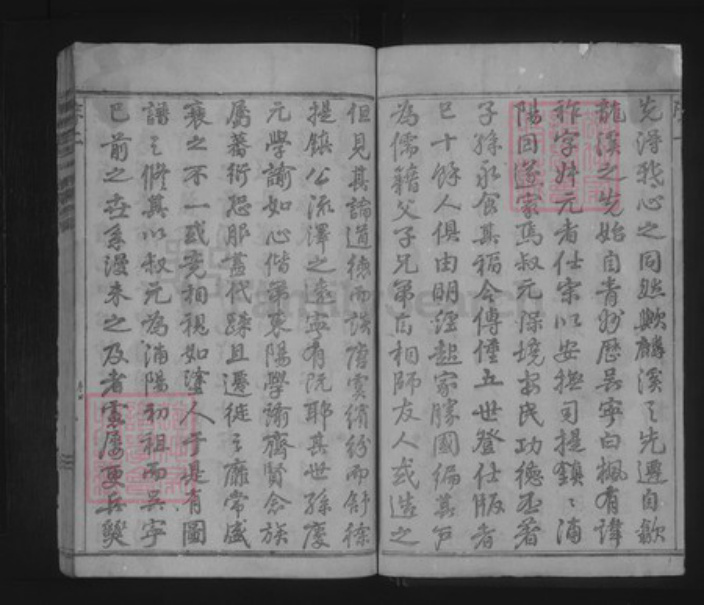 先得我心之同然歟麟溪之先遷自歙
龍溪之先始自青妙歷吳寧白楓有諱
祚字奸元者仕宋以安撫司提鎮浦
陽因遂家焉叔元保境安民功德丕著
子孫永食其福今傳僅五世登仕版者
已十餘人俱由明經起家勝國編其戶
為儒籍父子兄弟自相師友人或造之
但見其論道德而談唐虞繽紛而舒徐
提鎮公流澤之遠寧有既耶其世孫慶
元學諭如心偕弟東陽學諭齊賢念族
屬蕃衍恐服盡代疎且遷徙之靡常盛
衰之不一或竟相視如塗人于是有圖
譜之修其以叔元為浦陽初祖而吳寧
已前之世系漫未之及者實屢更兵燹